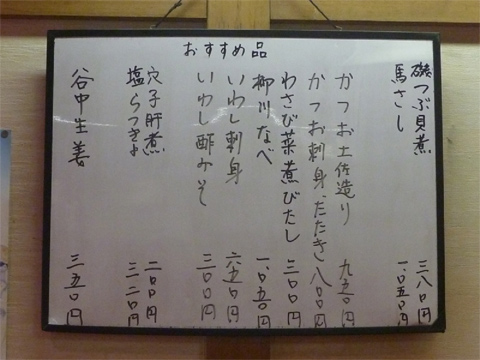 おすすめ品
磯つぶ貝煮 三八〇円
馬さし 一、〇五〇円
かつお土佐造り 九五〇円
かつお刺身、たたき 八〇〇円
わさび菜煮びたし 三〇〇円
柳川なべ 一、〇五〇円
いわし刺身 六五〇円
いわし酢みそ 三〇〇円
穴子肝煮 二〇〇円
塩らっきょ 三二〇円
谷中生姜 三五〇円